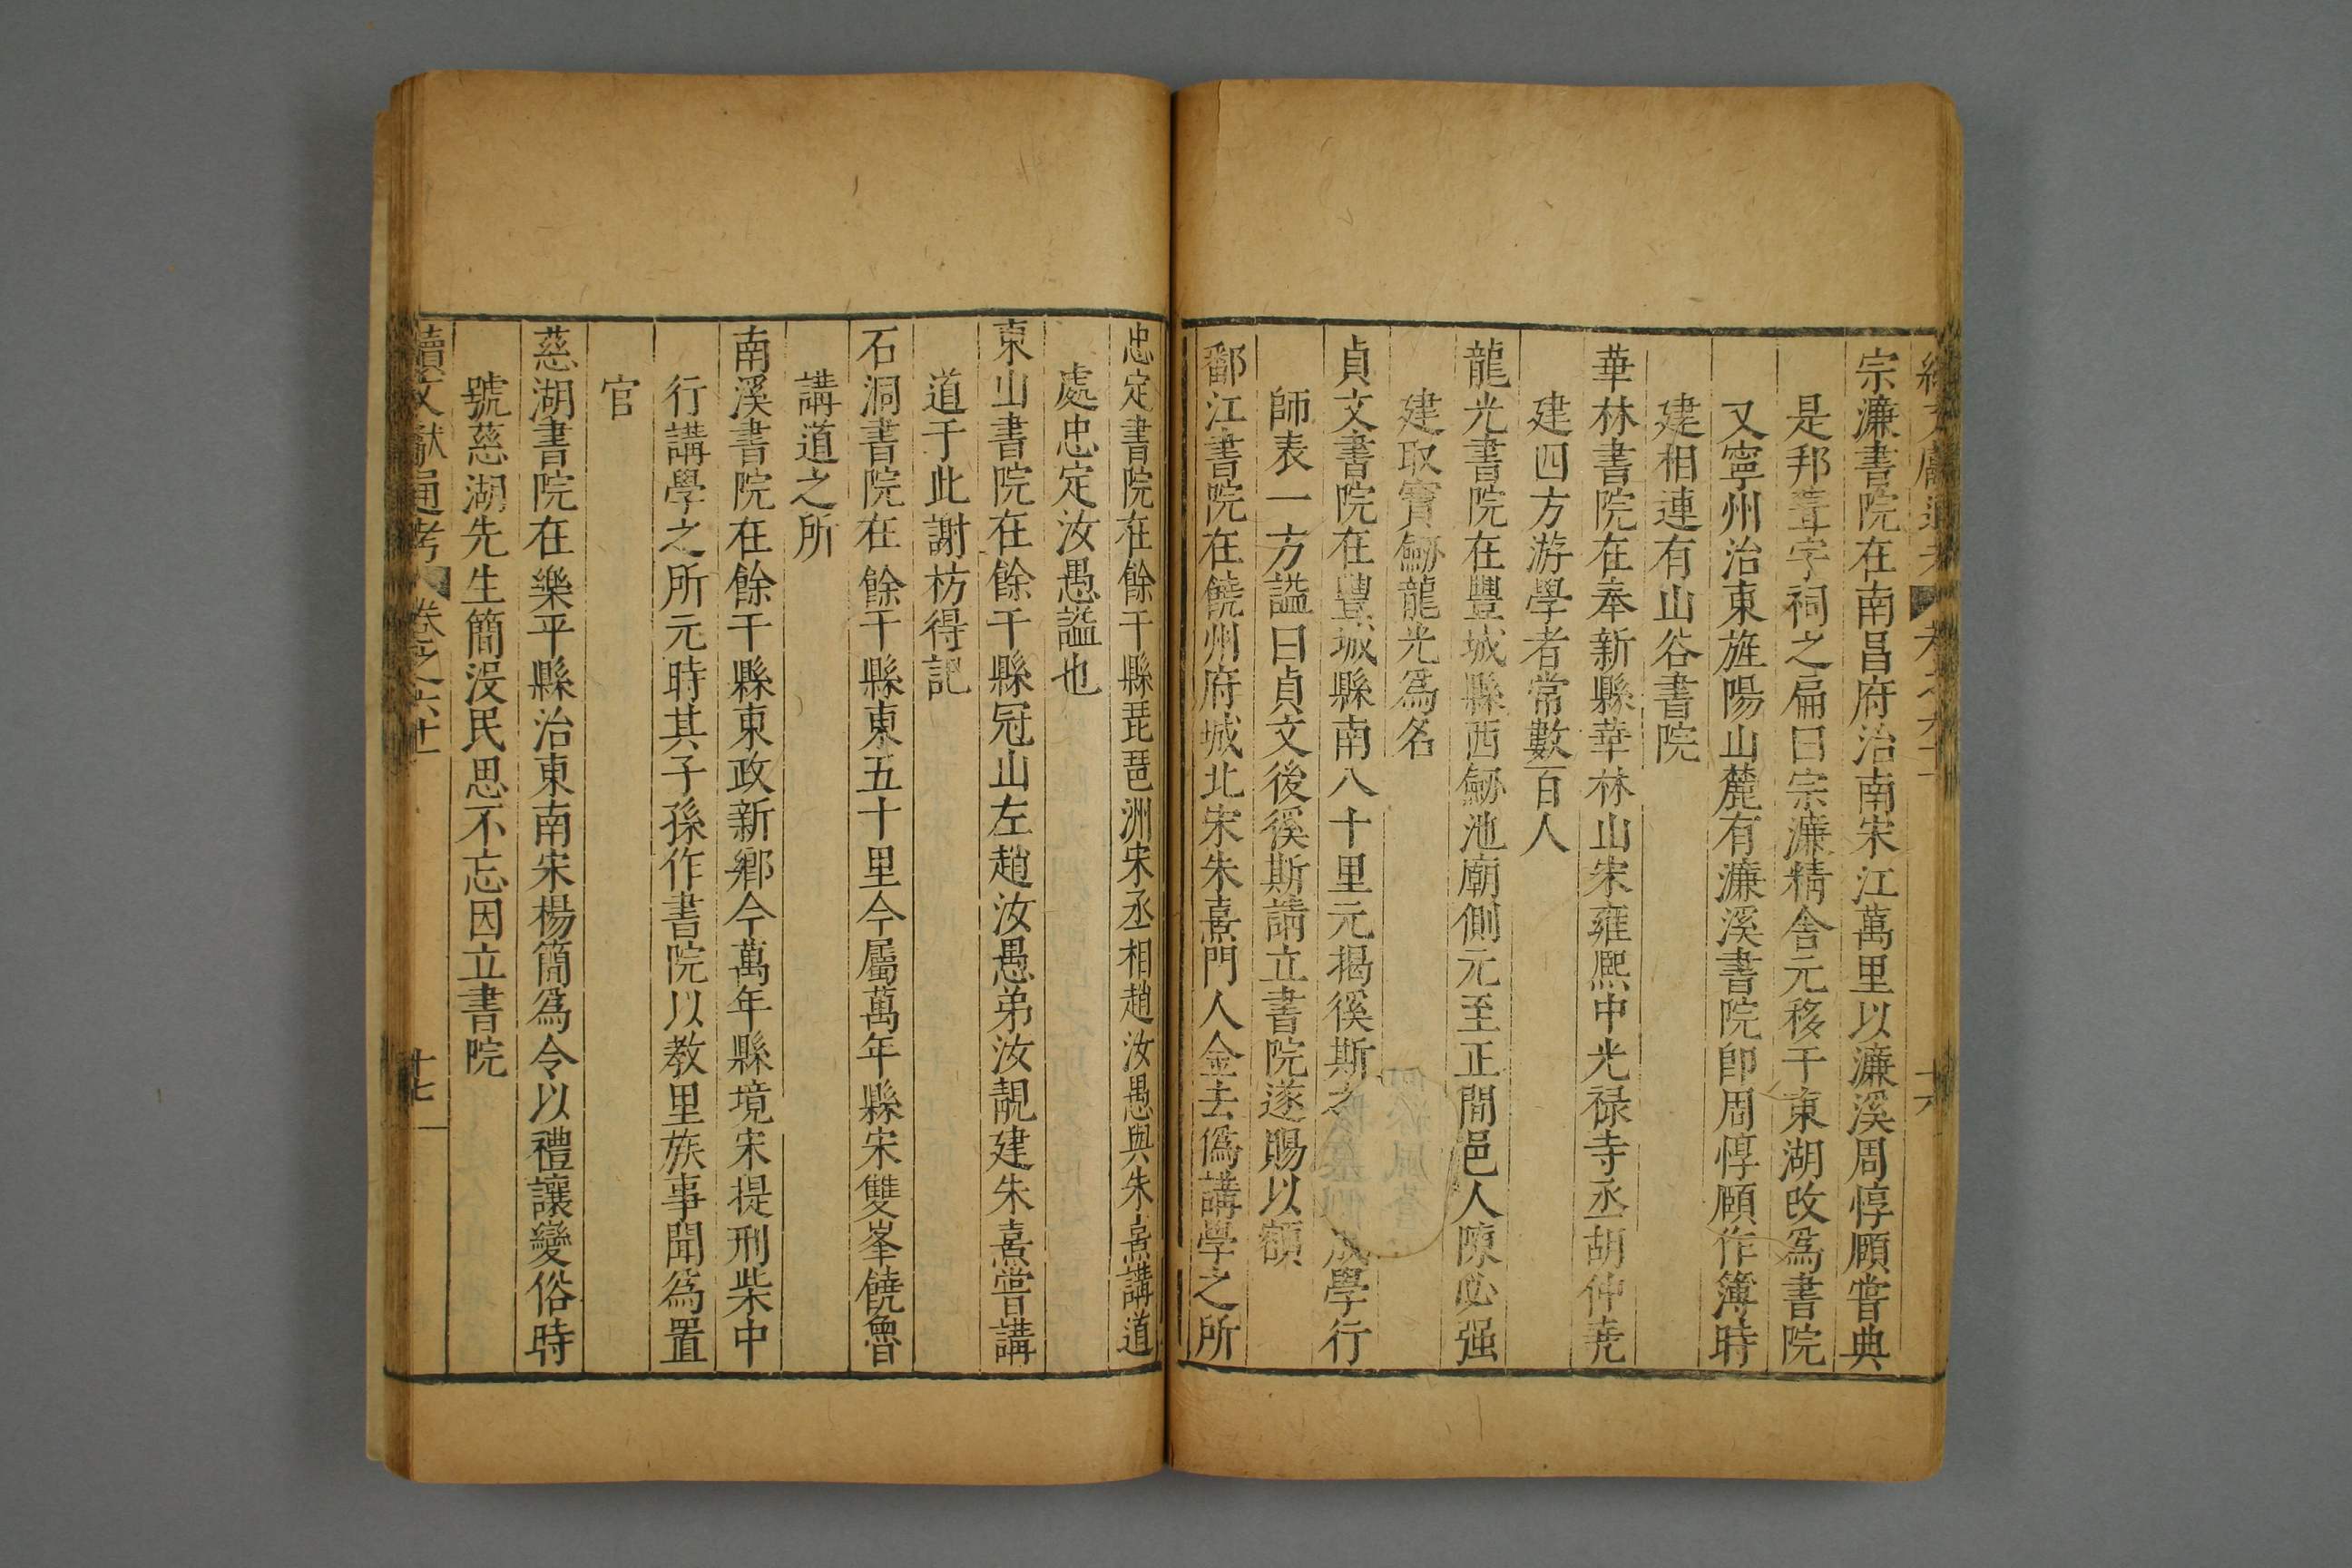 宗濂書院在南昌府治南宋江萬里以濂溪周惇頤嘗典
是邦葺宇祠之扁曰宗濂精舍元移于東湖改爲書院
又寧州治東旌陽山麓有濂溪書院卽周惇頤作簿時
建相連有山谷書院
華林書院在奉新縣華林山宋雍熈中光禄寺丞胡仲堯
建四方游學者常數百人
龍光書院在豐城縣西劒池廟側元至正間邑人陳必强
建取寳劒龍光爲名
貞文書院在豐城縣南八十里元揭徯斯之 學行
師表一方謚曰貞文後徯斯請立書院遂賜以額
鄱江書院在饒州府城北宋朱熹門人金去僞講學之所
忠定書院在餘干縣琵琶洲宋丞相趙汝愚與朱熹講道
處忠定汝愚謚也
東山書院在餘干縣冠山左趙汝愚弟汝靚建朱熹嘗講
道于此謝枋得記
石洞書院在餘干縣東五十里今屬萬年縣宋雙峯饒魯
講道之所
南溪書院在餘干縣東政新鄉今萬年縣境宋提刑柴中
行講學之所元時其子孫作書院以教里族事聞爲置
官
慈湖書院在樂平縣治東南宋楊簡爲令以禮讓變俗時
號慈湖先生簡没民思不忘因立書院
續文獻通考 卷之六十一 十七